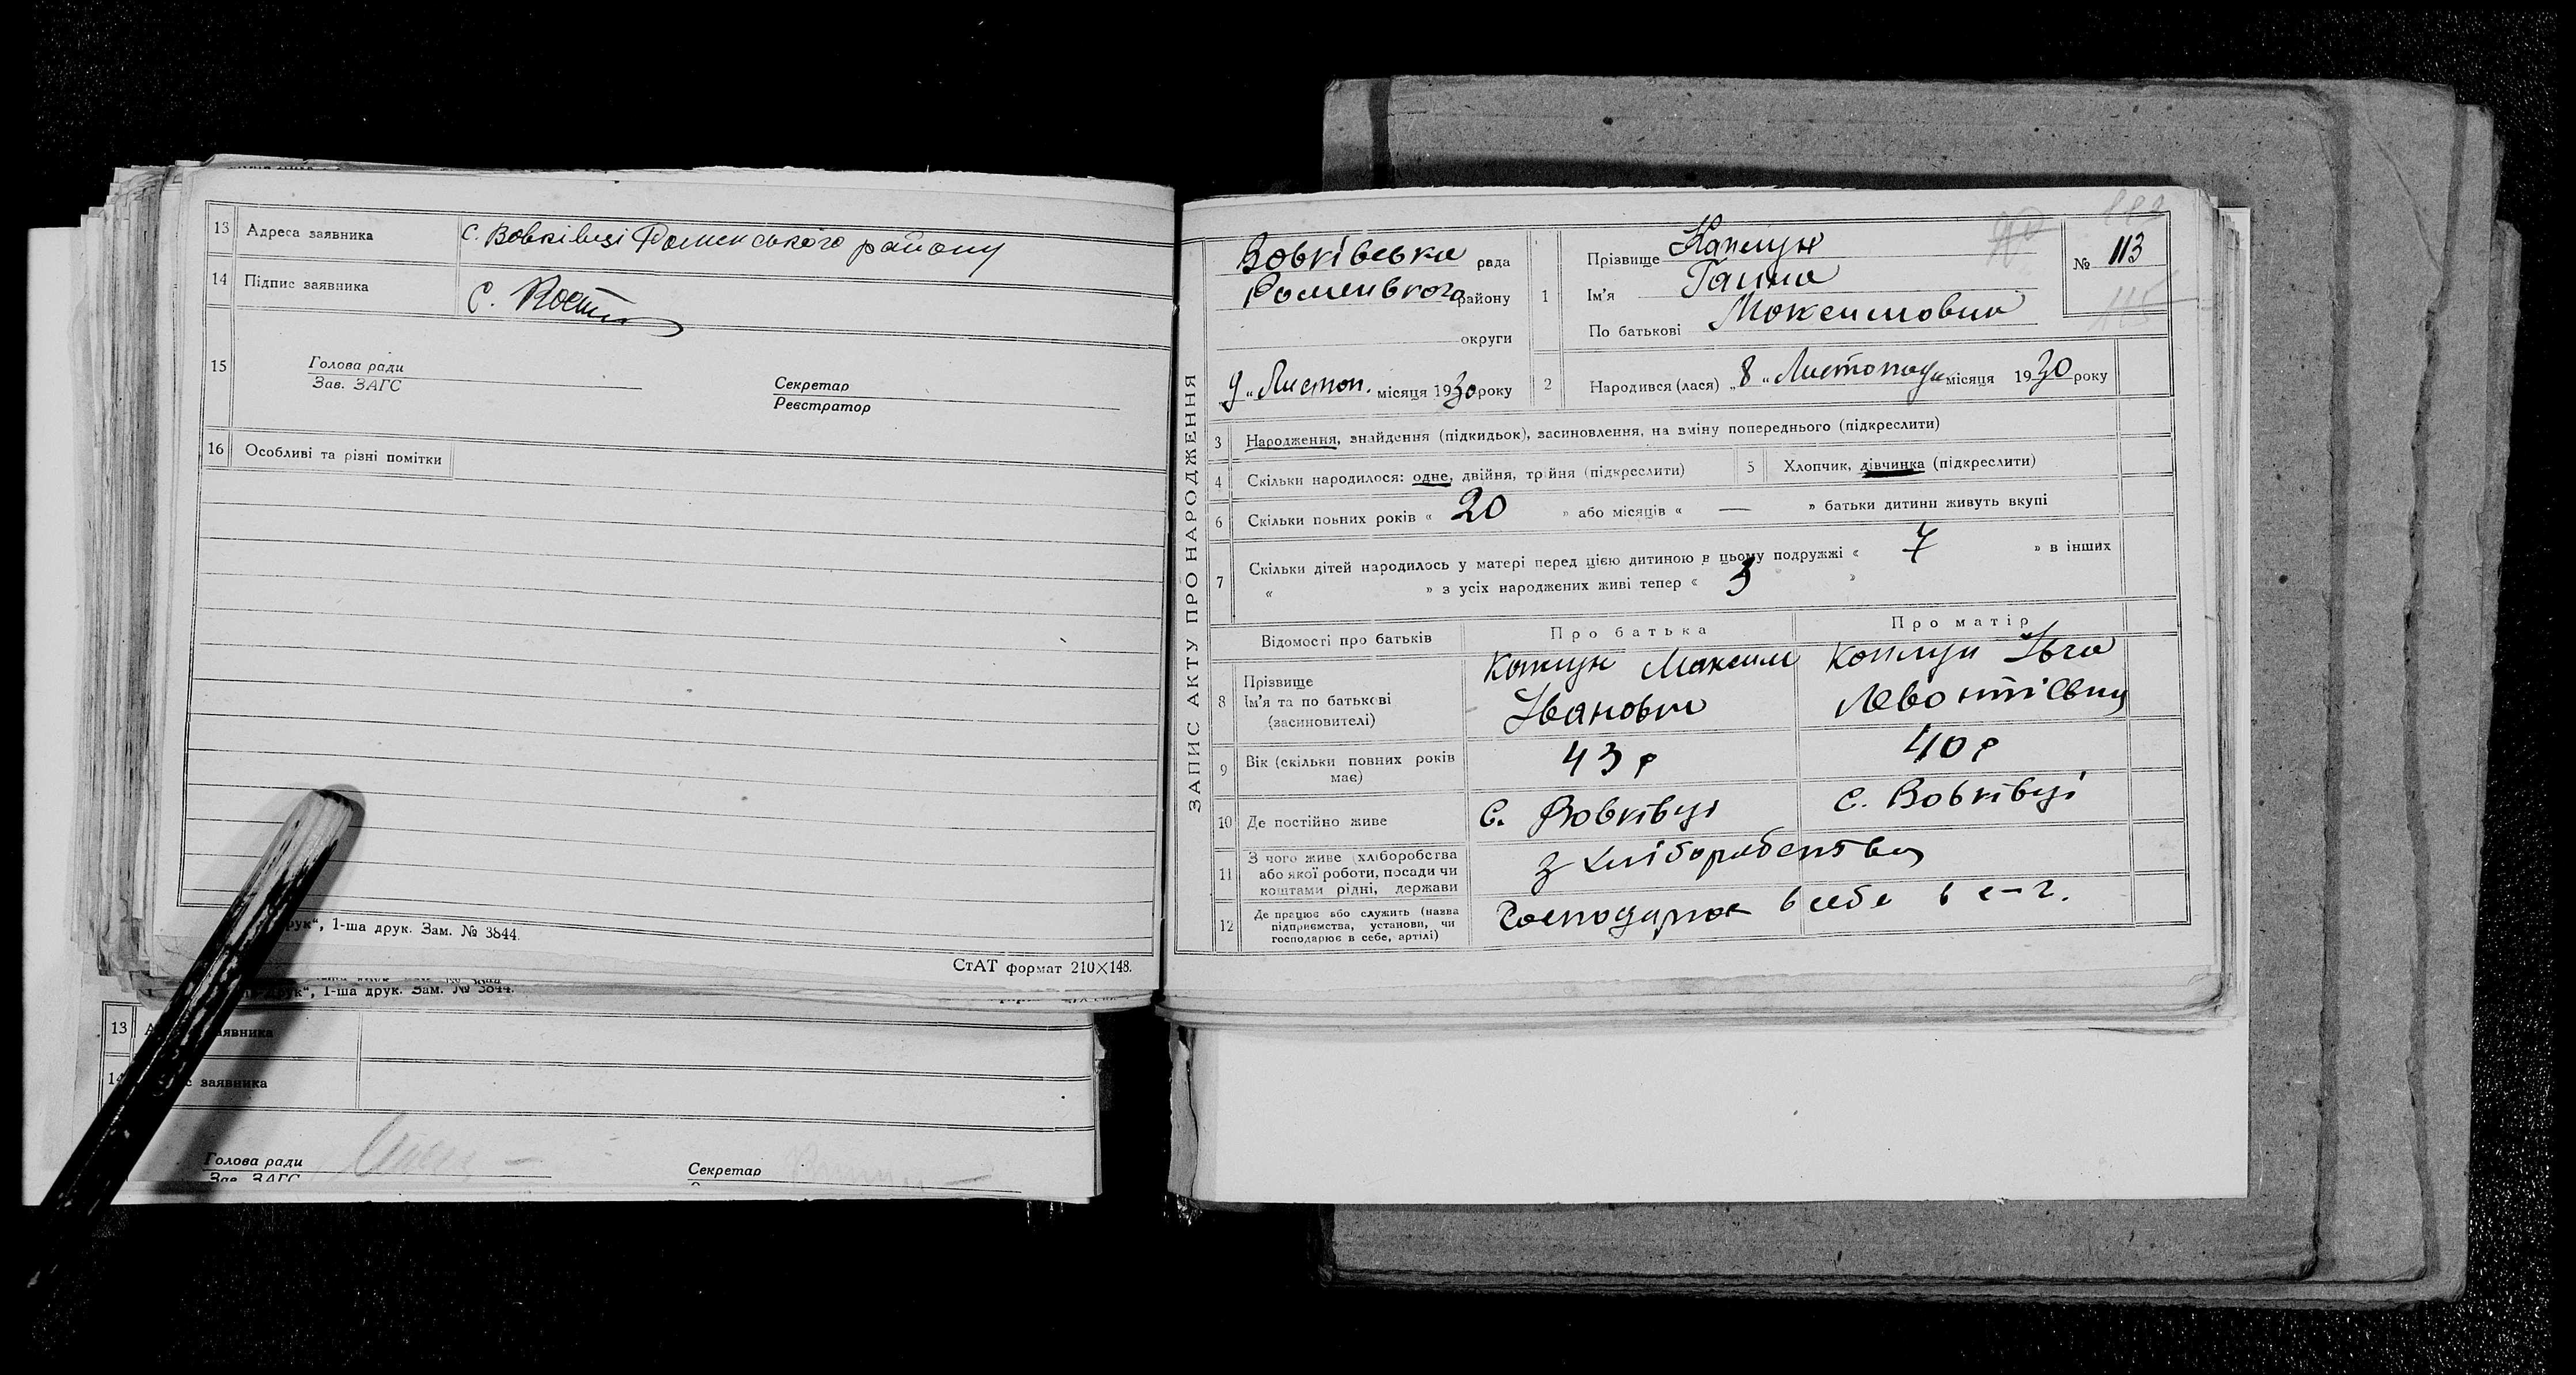 13 Адреса заявника с. Вовківці Роменського району
14 Підпис заявника С.
15 Голова ради
Зав. ЗАГС
Секретар
Реєстратор
16 Особливі та різні помітки
рук“, 1-ша друк. Зам. № 3844.
СтАТ формат 210×148.
друк“, 1-ша друк. Зам. № 3844.
13 заявника
14 заявника
Голова ради
Зав. ЗАГС
Секретар
ЗАПИС АКТУ ПРО НАРОДЖЕННЯ
Вовківська рада
Роменського району
округи
„9“ Листоп. місяця 1930 року
№ 113
1 Прізвище Каплун
Ім'я Ганна
По батькові Максимовна
2 Народився (лася) „8“ Листопада місяця 1930 року
3 Народження, знайдення (підкидьок), засиновлення, на зміну попереднього (підкреслити)
4 Скільки народилося: одне, двійня, трійня (підкреслити)
5 Хлопчик, дівчинка (підкреслити)
6 Скільки повних років « 20 » або місяців « — » батьки дитини живуть вкупі
7 Скільки дітей народилось у матері перед цією дитиною в цьому подружжі « 7 » в інших
« » з усіх народжених живі тепер « 3 »
Відомості про батьків Про батька Про матір
8 Прізвище
Ім'я та по батькові
(засиновителі)
Каплун Максим
Іванович
Каплун Івга
Левонтіевна
9 Вік (скільки повних років має) 43 р 40 р
10 Де постійно живе с. Вовківці с. Вовківці
11 З чого живе (хліборобства
або якої роботи, посади чи
коштами рідні, держави
з хліборобства
12 Де працює або служить (назва
підприємства, установи, чи
господарює в себе, артілі)
Господарює в себе в с-г.